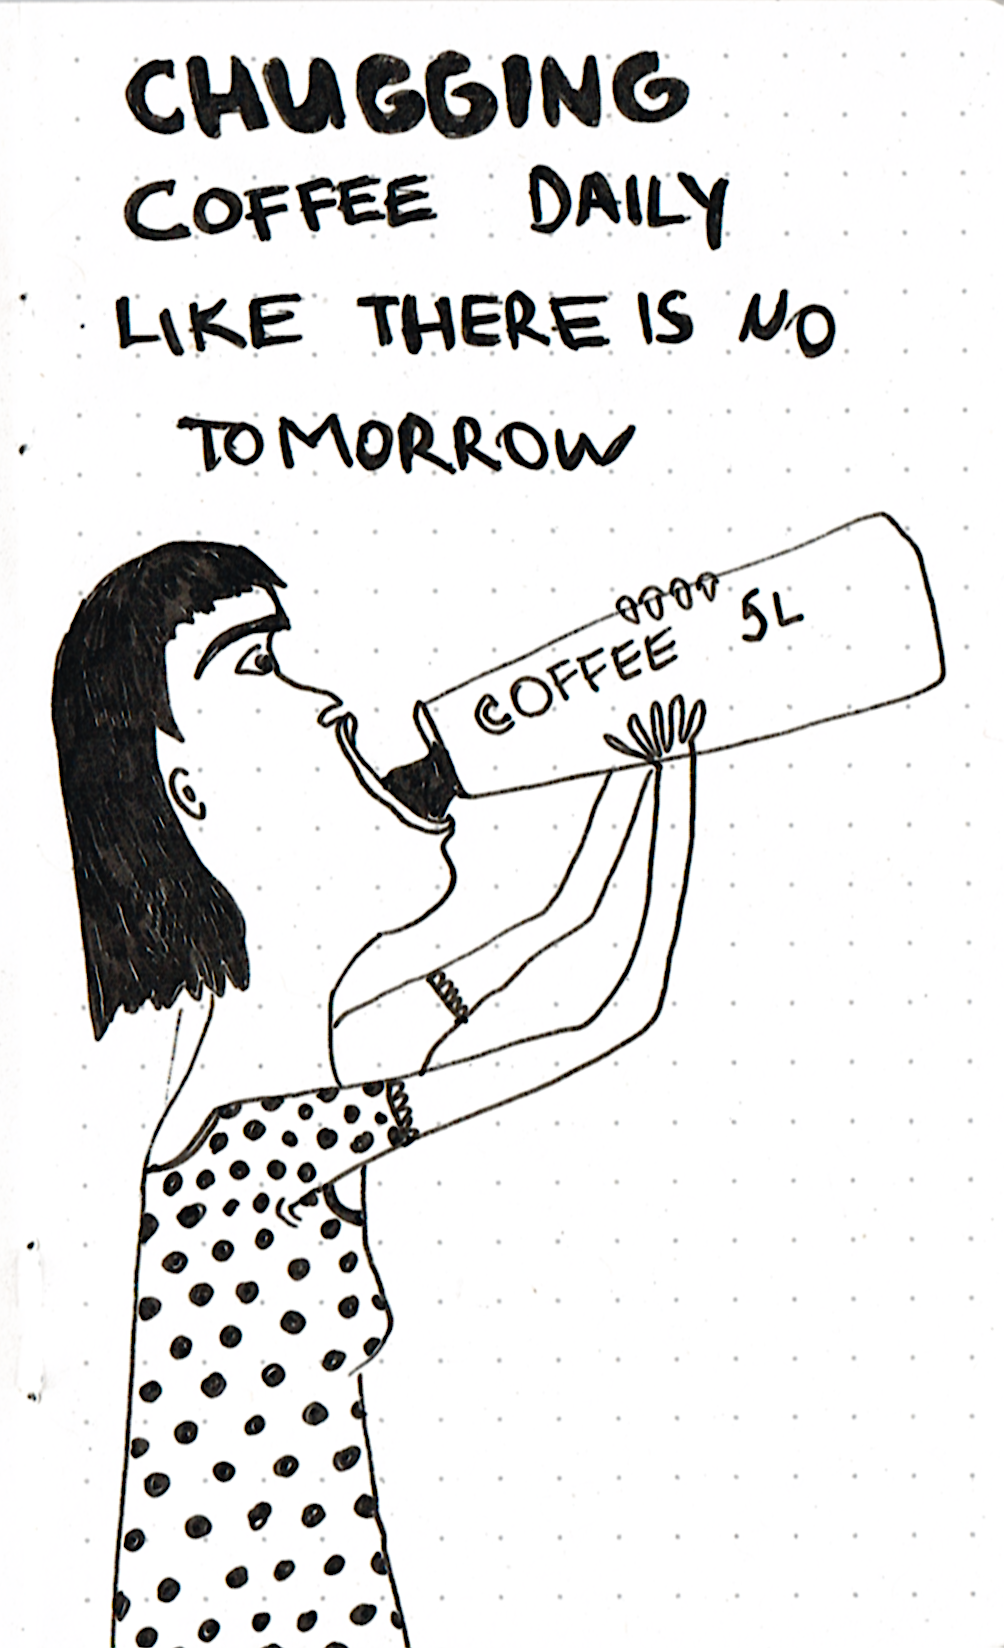 CHUGGING
COFFEE DAILY
LIKE THERE IS NO
TOMORROW
COFFEE 5L